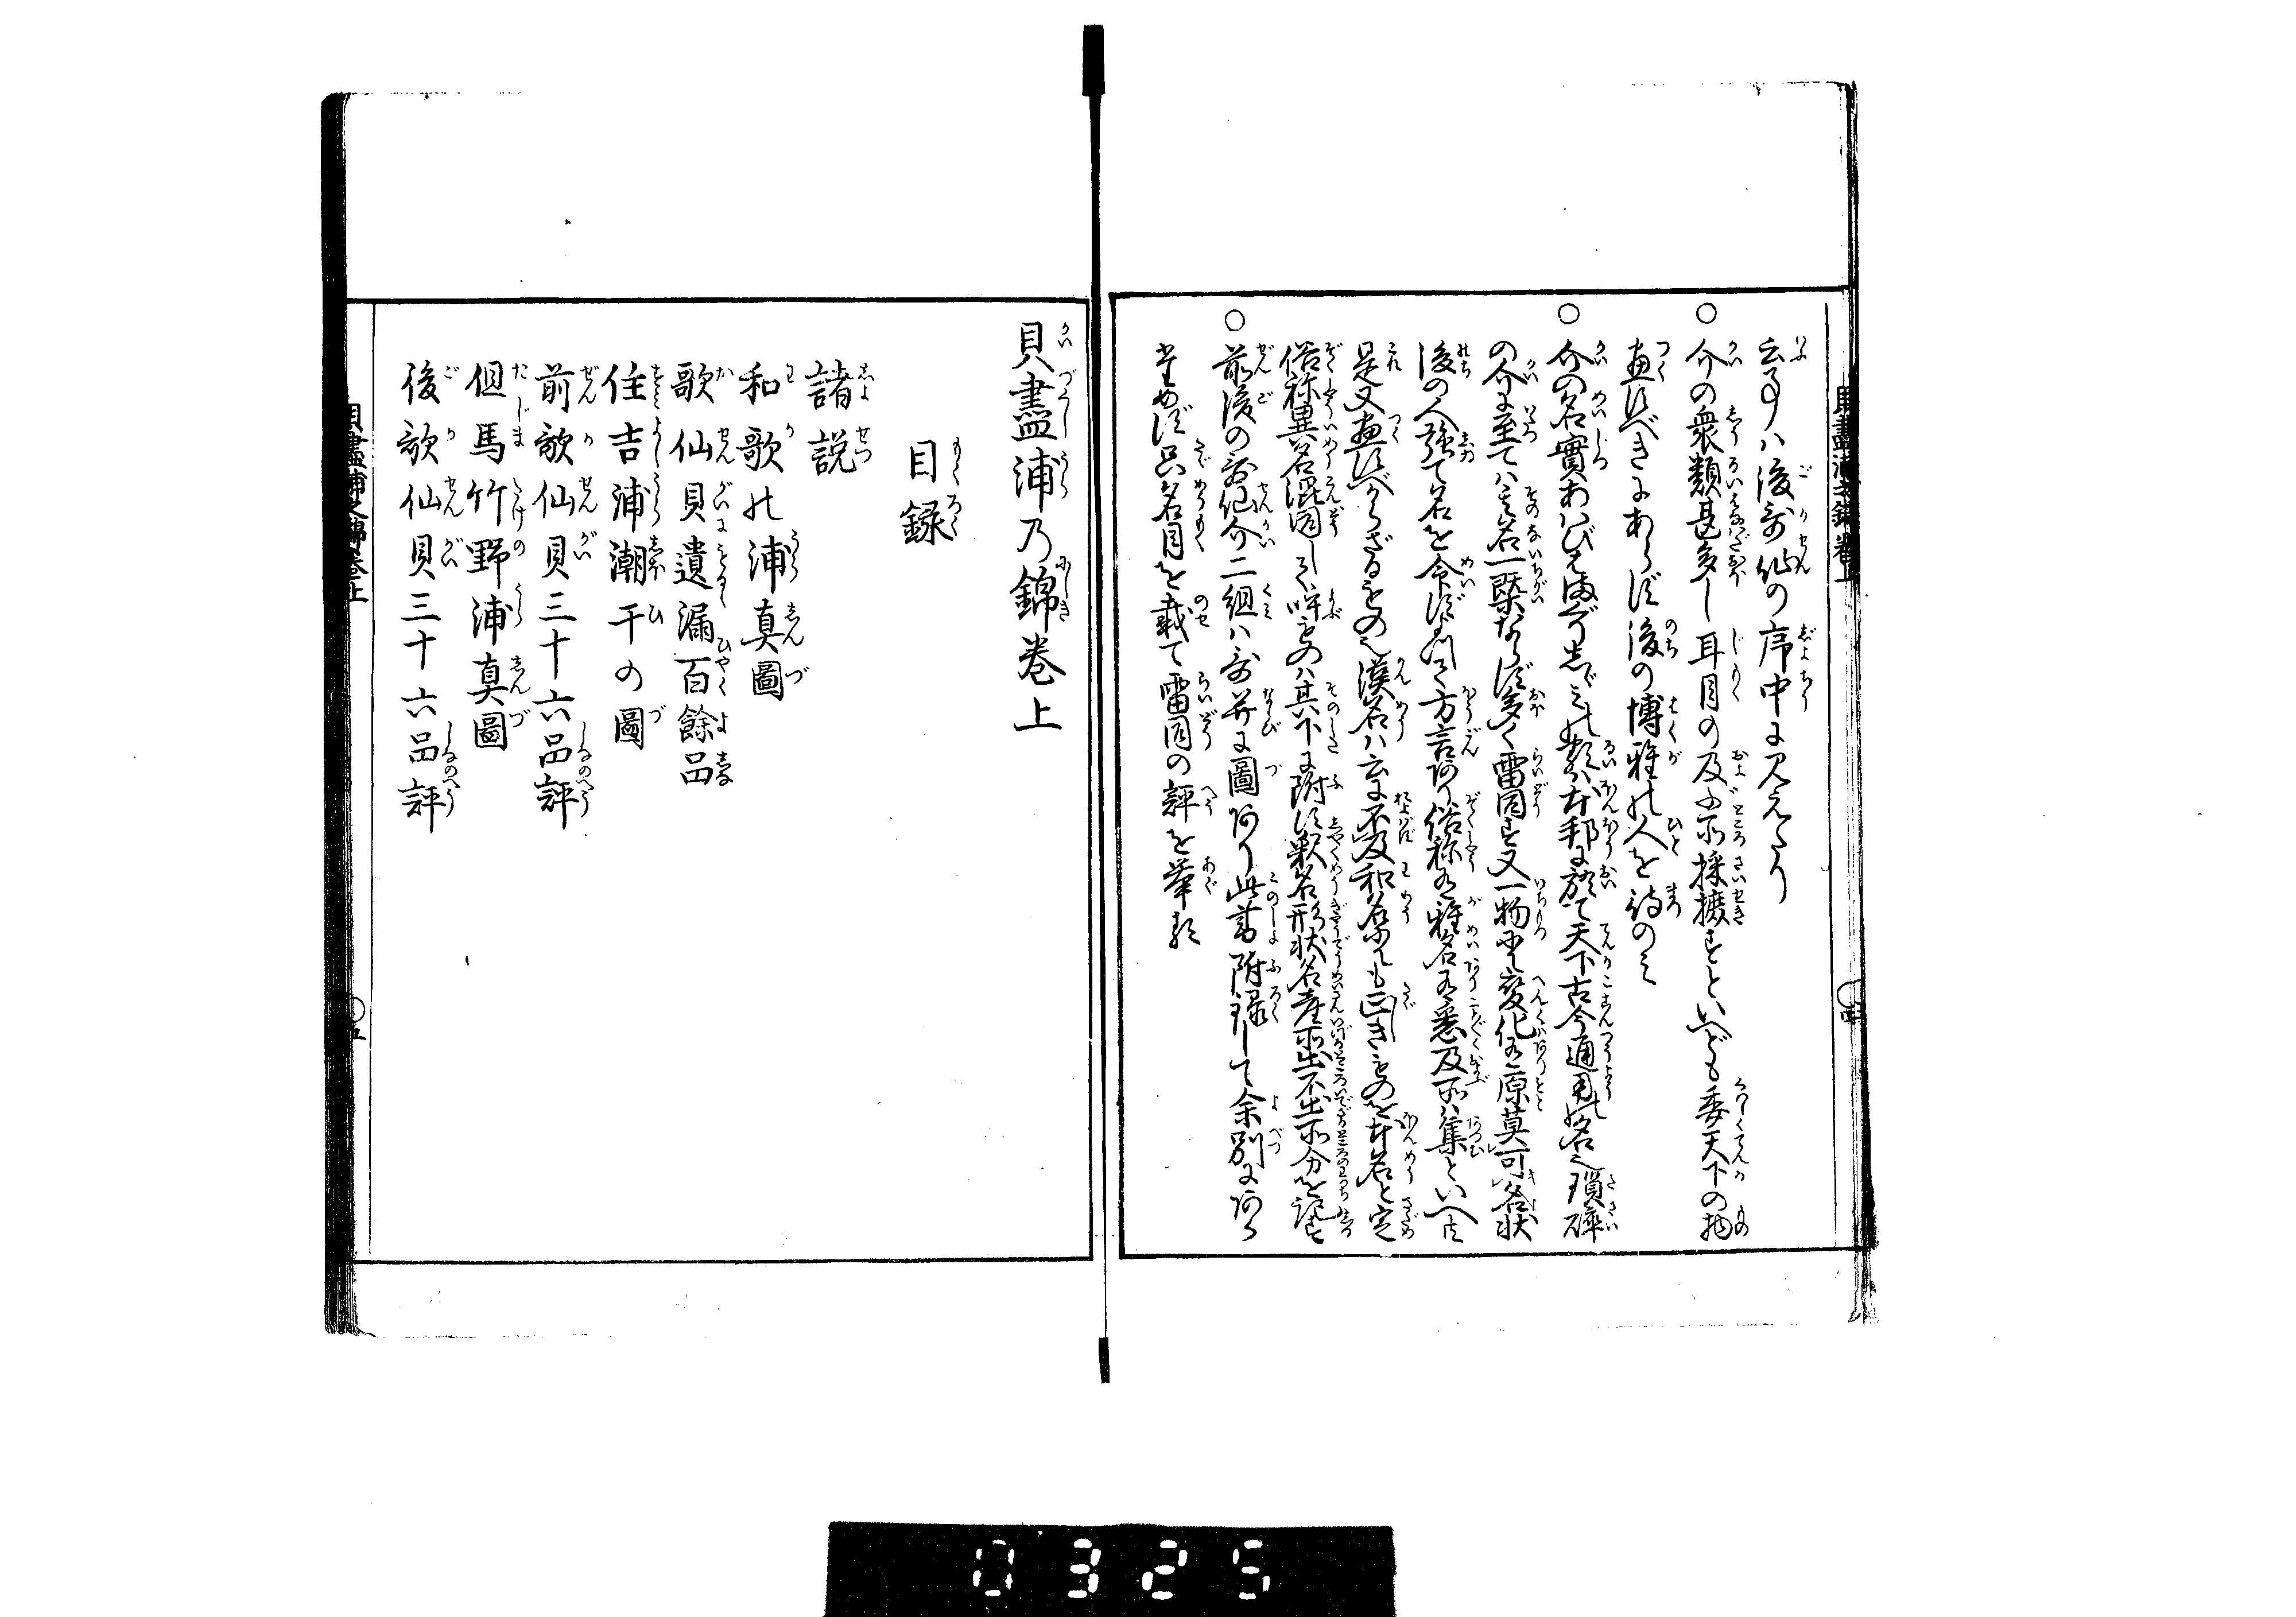 云事ハ後歌仙の序中に見えたり
○介の衆類甚多し耳目の及ぶ所採摭すといへども委天下の物
盡すべきにあらず後の博雅の人を待のミ
○介の名實あハびはまぐりしゞミの類ハ本邦に於て天下古今通用の名也瑣碎
の介に至てハ其名一槩ならず多く雷同す又一物にして変化有原莫可名状
後の人強て名を命ずによつて方言あり俗称有雅名有悉及所ハ集といへ共
是又盡すべからざるもの也漢名ハ云に不及和名にても正きものを本名と定
俗称異名混同して呼ものハ其下に附す釈名形状名産所出不出所分を記す
○前後の歌仙介二組ハ歌并に圖あり此書附録して余別にあら
ためず只名目を載て雷同の評を挙る
貝盡浦乃錦巻上
目録
諸説
和歌の浦真圖
歌仙貝遺漏百餘品
住吉浦潮干の圖
前歌仙貝三十六品評
但馬竹野浦真圖
後歌仙貝三十六品評
貝盡浦之錦巻上
五
0325